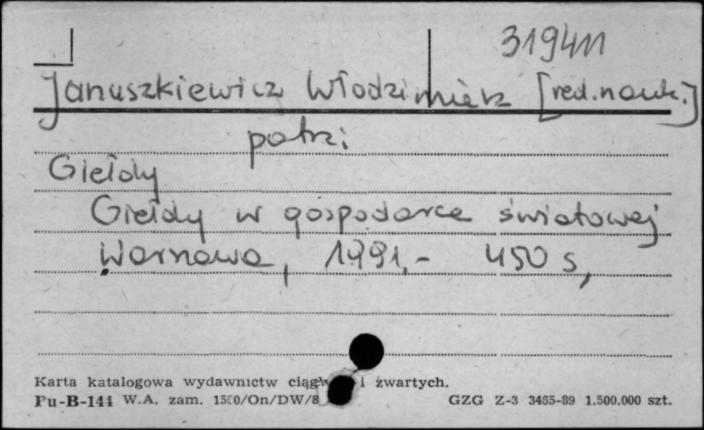 319411
Januszkiewicz Włodzimierz [red.nauk.]
patrz:
Giełdy
Giełdy w gospodarce światowej
Warszawa, 1991.- 450 s,
Karta katalogowa wydawnictw i zwartych.
Pu-B-144 W.A. zam. GZG Z-3 3485-89 1.500.000 szt.